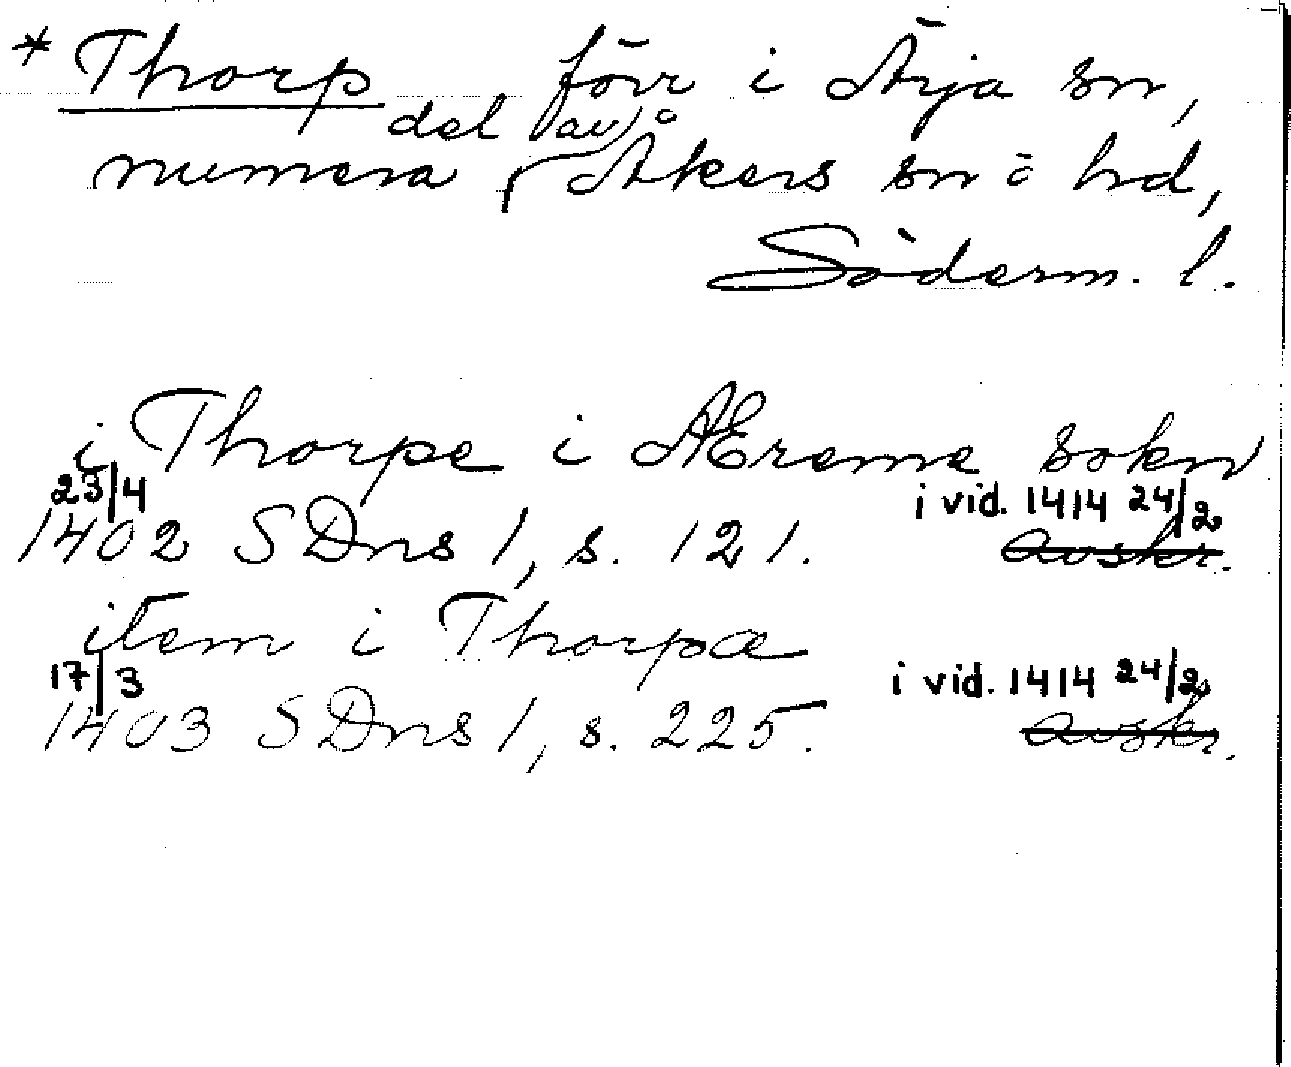 * Thorp förr i Ärja sn,
numera del av Åkers sn o hd,
Söderm. l.
i Thorpe i Ærem̅e sokn
23/4 1402 SDns 1, s. 121. i vid. 1414 24/2 Avskr.
item i Thorpæ
17/3 1403 SDns 1, s. 225. i vid. 1414 24/2 Avskr.